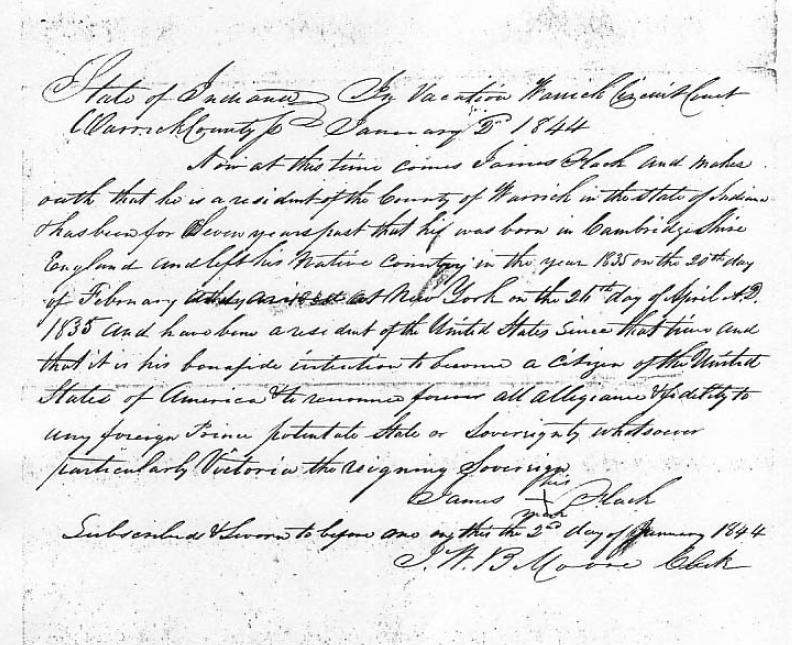 State of Indiana } In Vacation Warrick Circuit Court
Warrick County ss } January 2nd 1844
Now at this time comes James Flack and makes
oath that he is a resident of the County of Warrick in the State of Indiana
& has been for Seven years past that he was born in Cambridgeshire
England and left his Native Country in the year 1835 on the 20th day
of February at New York on the 26th day of April A.D.
1835 and have been a resident of the United States Since that time and
that it is his bonafide intention to become a Citizen of the United
States of America & to renounce forever all allegiance & fidelity to
any foreign Prince potentate State or Sovereignty whatsoever
particularly Victoria the reigning Sovereign
his
James X Flack
mark
Subscribed & Sworn to before me on this the 2nd day of January 1844
J. W. B. Moore Clerk